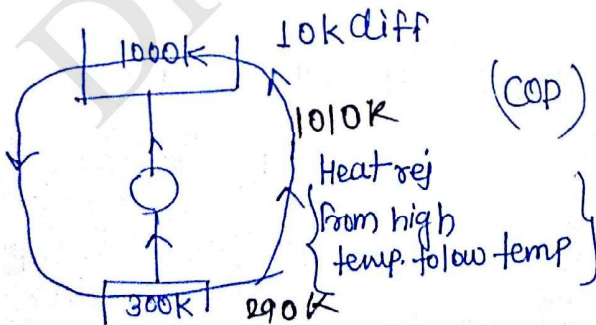 1000K
10k diff
(COP)
1010K
Heat rej
from high
temp. to low temp
300K
290K